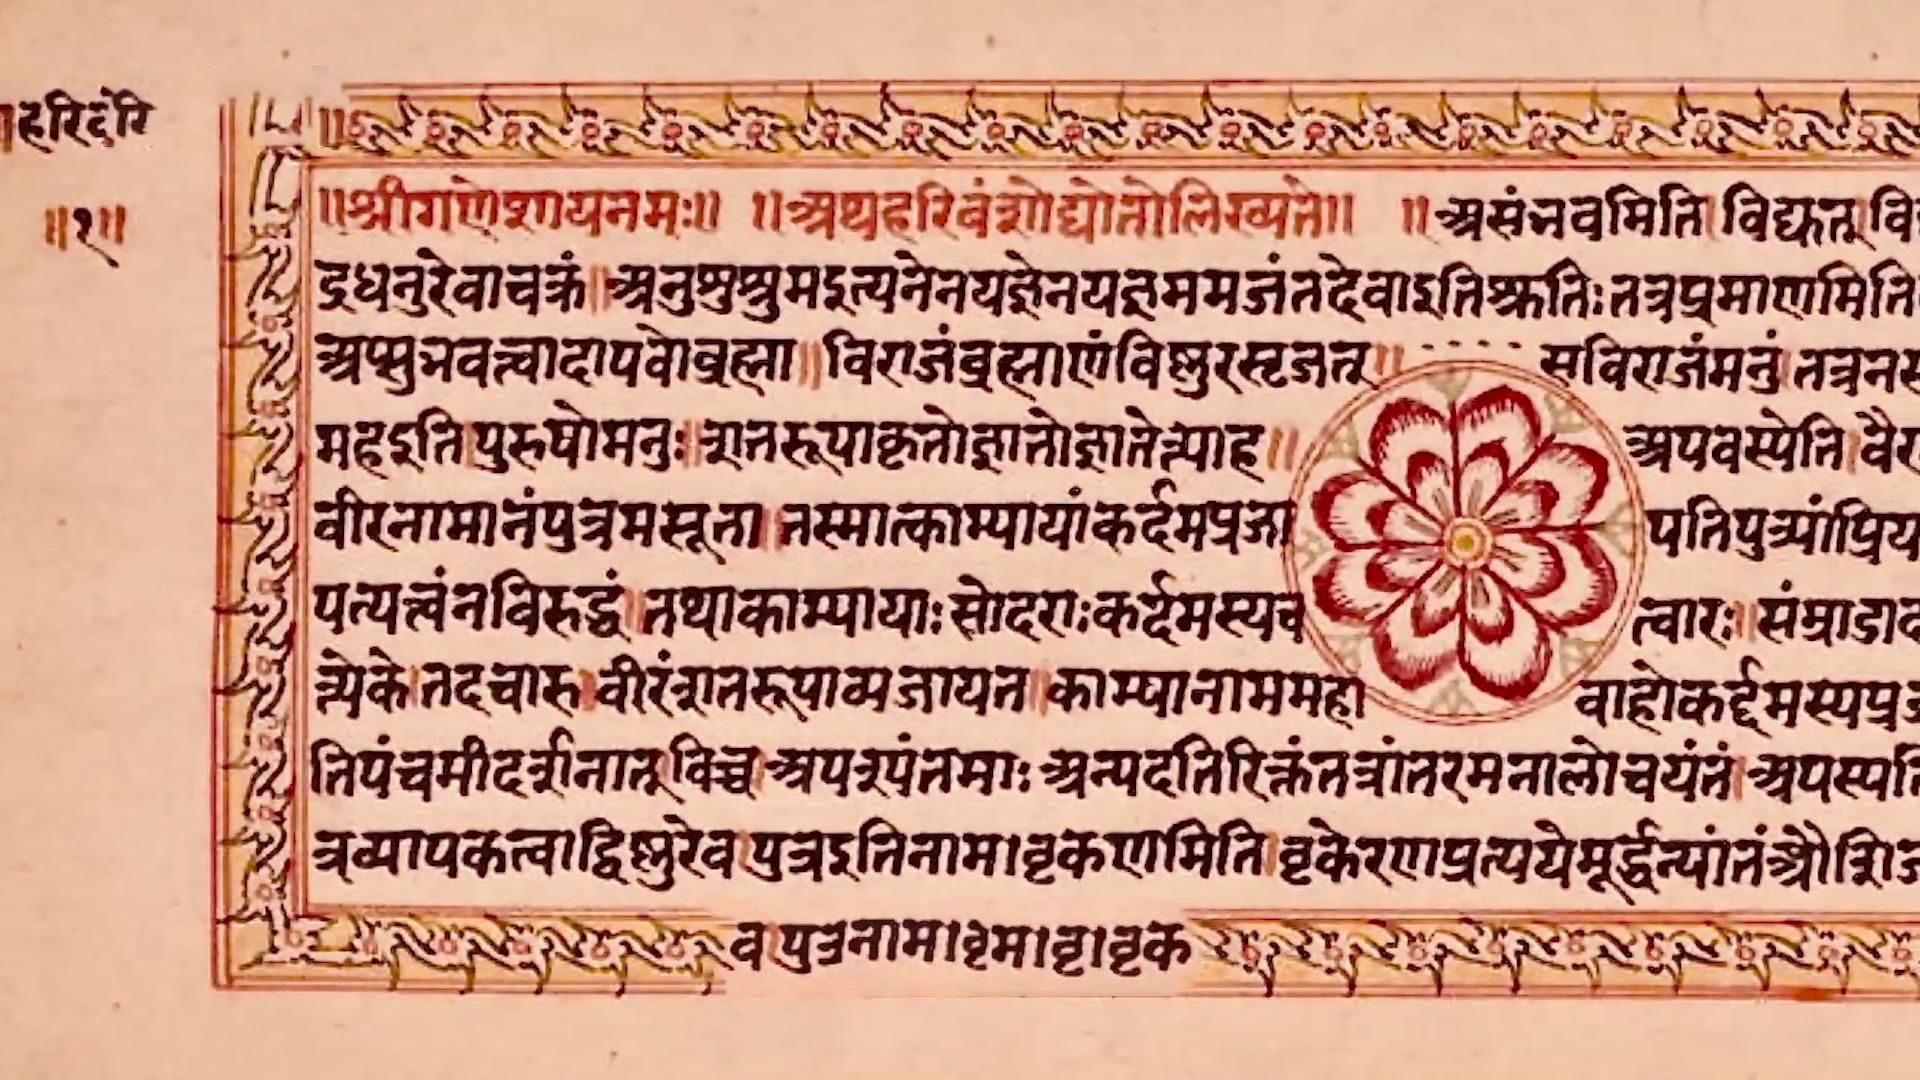 ॥हरिदेरि
॥१॥
॥श्रीगणेशायनमः॥ ॥अथहरिवंशोद्योतोलिख्यते॥ ॥असंभवमिति विद्यत् वि
द्धनुरेवाचक्रं अनुशुश्रुमइत्यनेनयज्ञेनयज्ञममजंतदेवाइतिश्रुतिः तत्रप्रमाणमिति
अप्सुभवत्वादापवोब्रह्मा॥ विराजंब्रह्माणंविष्णुरसृजत्॥ सविराजंमनुं तत्रनस
महइति पुरुषोमनुः शतरूपाकृतो अपवस्येति वै
वीरनामानंपुत्रमसूता तस्मात्काम्यायांकर्दमप्रजा पतिपुत्र्यांप्रिय
पत्यत्वंनविरुद्धं तथाकाम्यायाः सोदराः कर्दमस्यच त्वारः॥ संम्राडाद
त्र्येके तदचारु वीरंशतरूपाव्यजायत काम्यानाममहा वाहोकर्द्दमस्यप्रज
तिपंचमीदर्शनात् अन्यदतिरिक्तंतत्रांतरमनालोचयंतं अपस्यति
त्रव्यापकत्वाद्विष्णुरेव पुत्रइतिनाम। वृकणमिति वृकेरणप्रत्ययेमूर्द्धन्यांतं
व पुत्रनाम। वृम। वृ। वृक